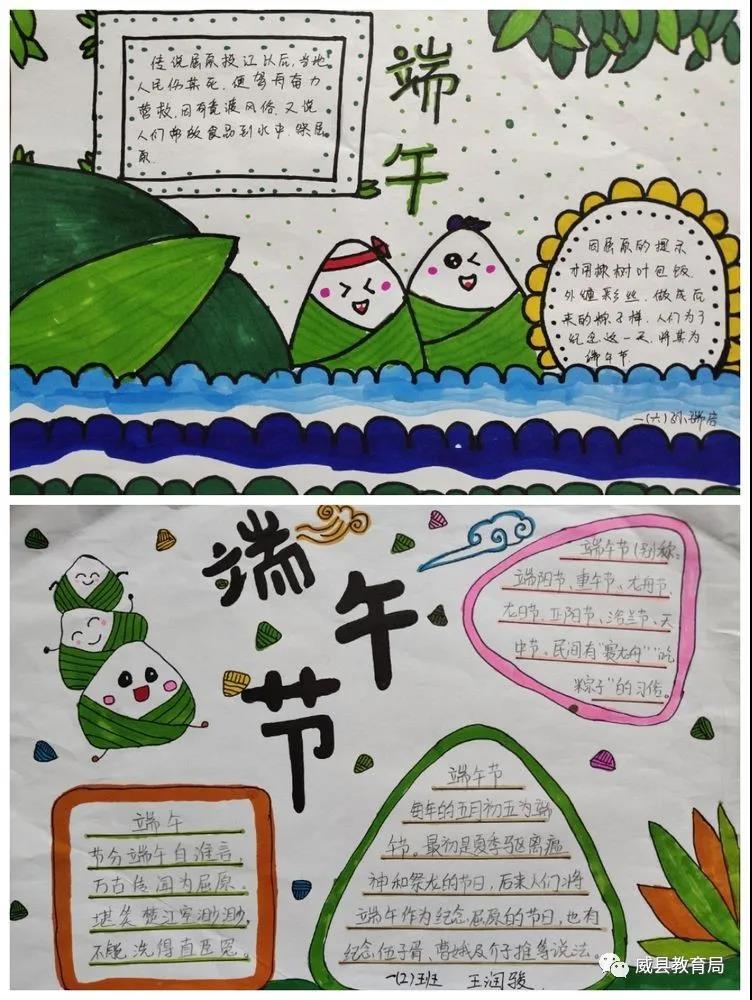 传说屈原投江以后，当地
人民伤其死，便驾舟奋力
营救，因有竞渡风俗，又说
人们常放食品到水中，祭屈
原
端
午
因屈原的提示
才用楝树叶包饭，
外缠彩丝，做成后
来的粽子样，人们为了
纪念这一天，将其为
端午节
端
午
节
端午节（别称：
端阳节、重午节、龙舟节
龙日节、正阳节、浴兰节、天
中节、民间有“赛龙舟”“吃
粽子”的习俗。
端午
节分端午自谁言，
万古传闻为屈原。
堪笑楚江空渺渺，
不能洗得直臣冤。
端午节
每年的五月初五为端
午节。最初是夏季驱离瘟
神和祭龙的节日，后来人们将
端午作为纪念屈原的节日，也有
纪念伍子胥、曹娥及介子推等说法。
一(2)班 王润骏
威县教育局